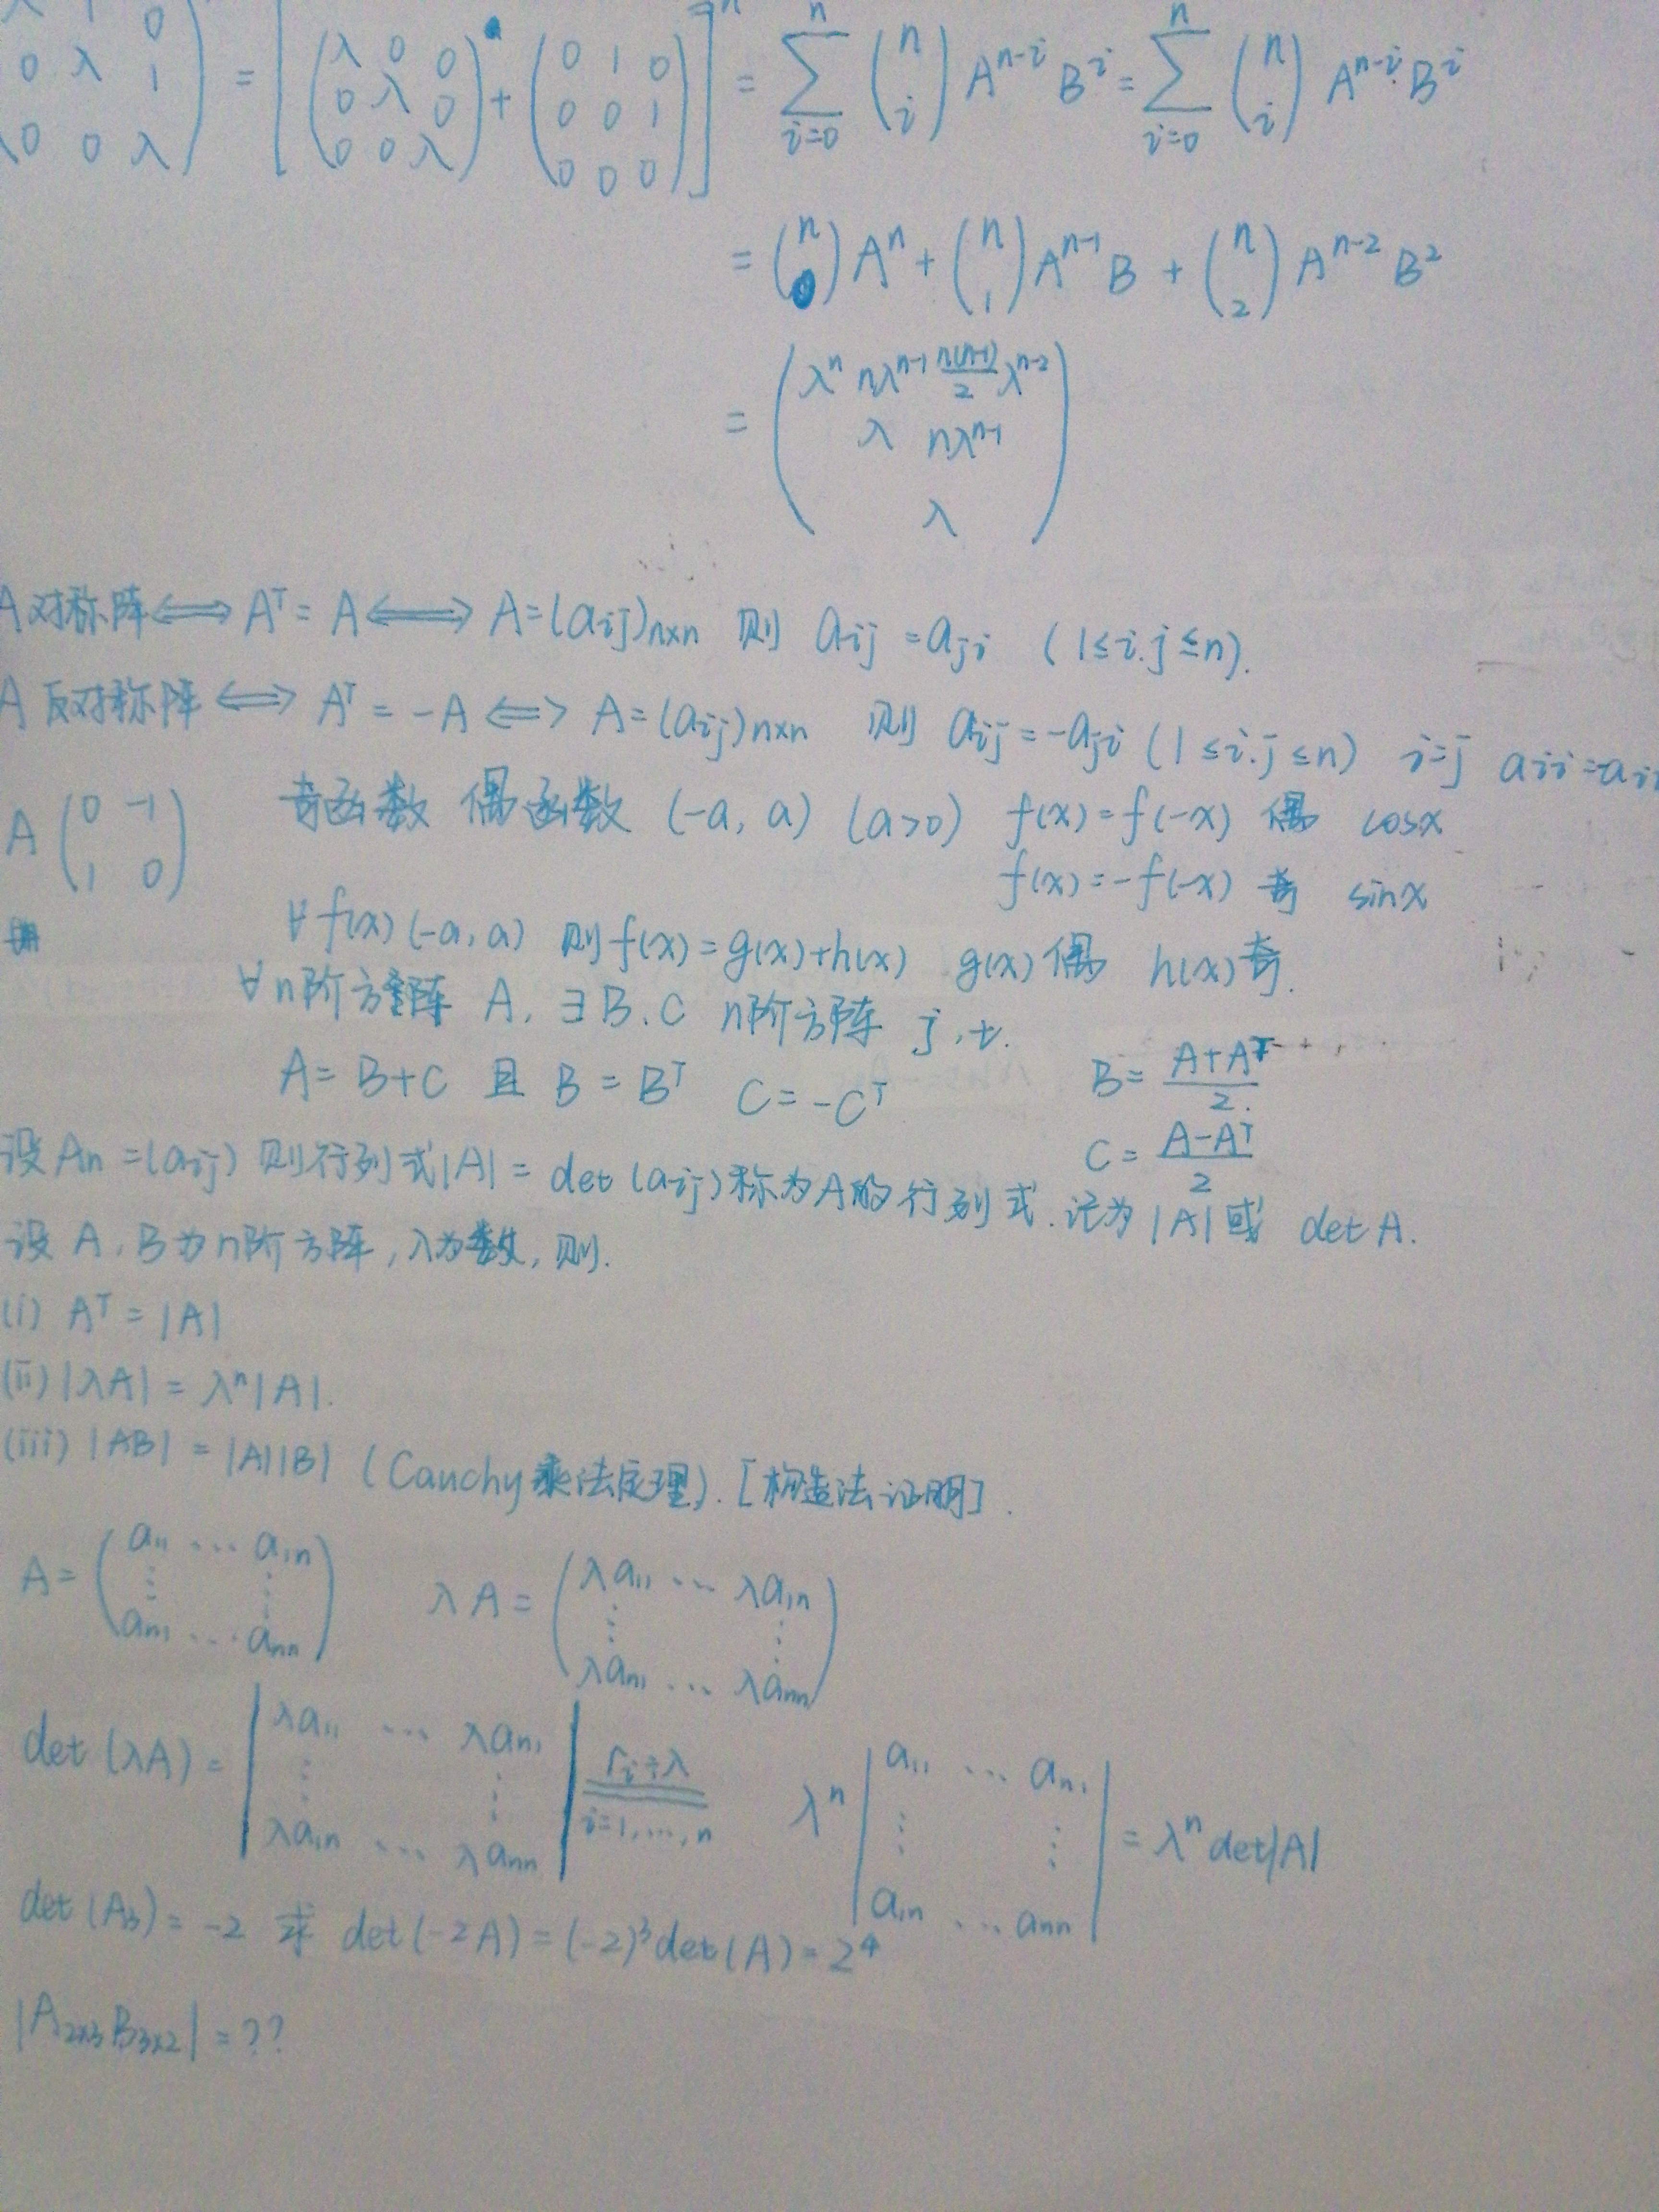 0 λ 1 = [(λ 0 0; 0 λ 0; 0 0 λ) + (0 1 0; 0 0 1; 0 0 0)]ⁿ = Σ_{i=0}^{n} (n i) A^{n-i} B^i = Σ_{i=0}^{n} (n i) A^{n-i} B^i
0 0 λ
= (n 0) Aⁿ + (n 1) A^{n-1} B + (n 2) A^{n-2} B²
= (λⁿ nλ^{n-1} n(n-1)/2 λ^{n-2}
λ nλ^{n-1}
λ)
A对称阵 ⟺ Aᵀ = A ⟺ A = (aij)n×n 则 aij = aji (1≤i.j≤n).
A反对称阵 ⟺ Aᵀ = -A ⟺ A = (aij)n×n 则 aij = -aji (1≤i.j≤n) i=j
A (0 -1; 1 0) 奇函数 偶函数 (-a, a) (a>0) f(x) = f(-x) 偶 cosx
f(x) = -f(-x) 奇 sinx
∀f(x) (-a, a) 则f(x) = g(x)+h(x) g(x)偶 h(x)奇.
∀n阶方阵 A. ∃B、C n阶方阵 j,t.
A = B+C 且 B = Bᵀ C = -Cᵀ B = (A+Aᵀ)/2.
C = (A-Aᵀ)/2
设An = (aij) 则行列式|A| = det(aij)称为A的行列式.记为|A|或 detA.
设A,B为n阶方阵,λ为数,则.
(i) Aᵀ = |A|
(ii) |λA| = λⁿ|A|.
(iii) |AB| = |A||B| (Cauchy乘法定理). [构造法证明].
A = (a11 ⋯ a1n; ⋮ ⋮; an1 ⋯ ann) λA = (λa11 ⋯ λa1n; ⋮ ⋮; λan1 ⋯ λann)
det(λA) = |λa11 ⋯ λan1; ⋮ ⋮; λa1n ⋯ λann| ri÷λ i=1,⋯,n λⁿ |a11 ⋯ an1; ⋮ ⋮; a1n ⋯ ann| = λⁿdet|A|
det(A3) = -2 求 det(-2A) = (-2)³det(A) = 2⁴
|A2×3 B3×2| = ??